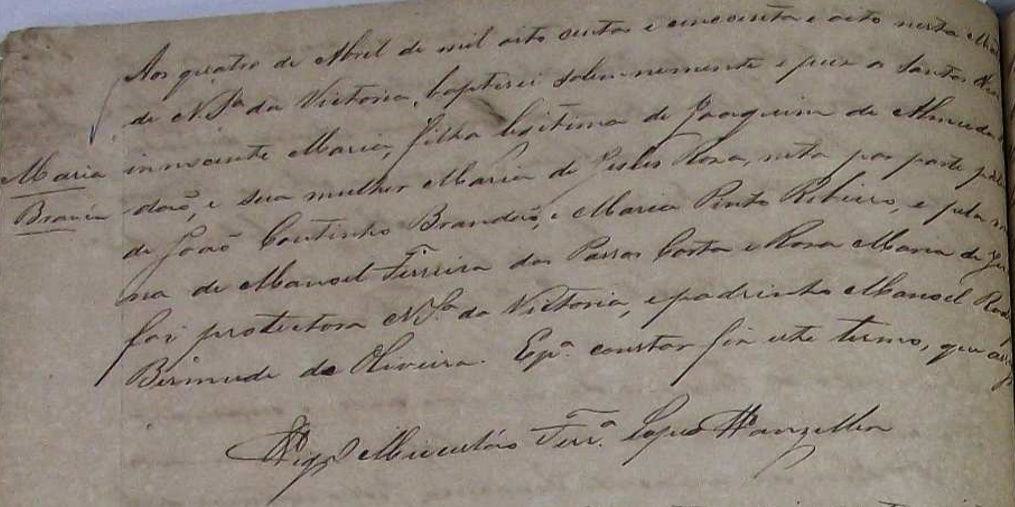 Aos quatro de Abril de mil oito centos e cincoenta e oito nesta
de N. Sa. da Victoria, baptisei solemnemente e puz os Santos
Maria
innocente Maria, filha legitima de Joaquim de Almeida
Branca
dão, e sua mulher Maria de Jesus Rosa, neta por parte
de João Coutinho Brandão, e Maria Pinto Ribeiro, e pela
na de Manoel Ferreira dos Passos Costa e Rosa Maria de
foi protectora N. Sa. da Victoria, e padrinho Manoel
Bermude de Oliveira. E pa. constar fiz este termo, que
Ferra. Lopes